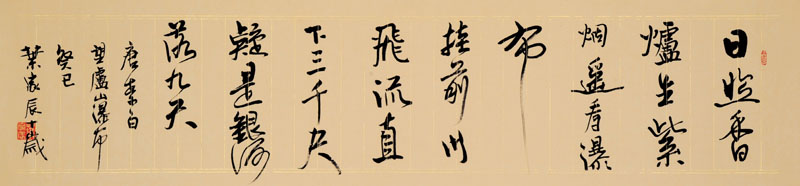 日照香
爐生紫
烟遥看瀑
布
挂前川
飛流直
下三千尺
疑是銀河
落九天
唐李白
望廬山瀑布
癸巳
葉家辰十歲